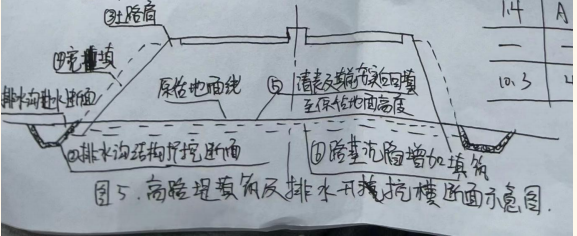 ③土路肩
1.4 A
④宽填
原始地面线
⑤清表及辗压实回填
至原始地面高度
10.3
排水沟
排水沟结构开挖断面
⑥路基沉陷增加填筑
图5.高路堤填筑及排水开挖横断面示意图.